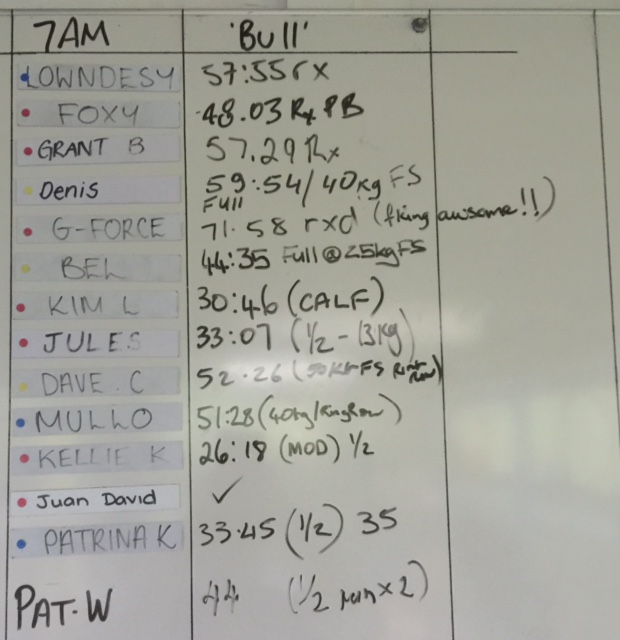 7AM 'Bull'
LOWNDESY 57:55 rx
FOXY 48.03 Rx PB
GRANT B 57.29 Rx
Denis 59:54/40kg FS
Full
G-FORCE 71.58 rxd (fking awsome!!)
BEL 44:35 Full @ 25kg FS
KIM L 30:46 (CALF)
JULES 33:07 (1/2 - 13kg)
DAVE. C 52.26 FS
MULLO 51:28 (40kg/
KELLIE K 26:18 (MOD) 1/2
Juan David ✓
PATRINA K 33.45 (1/2) 35
PAT-W 44 (1/2 run x 2)